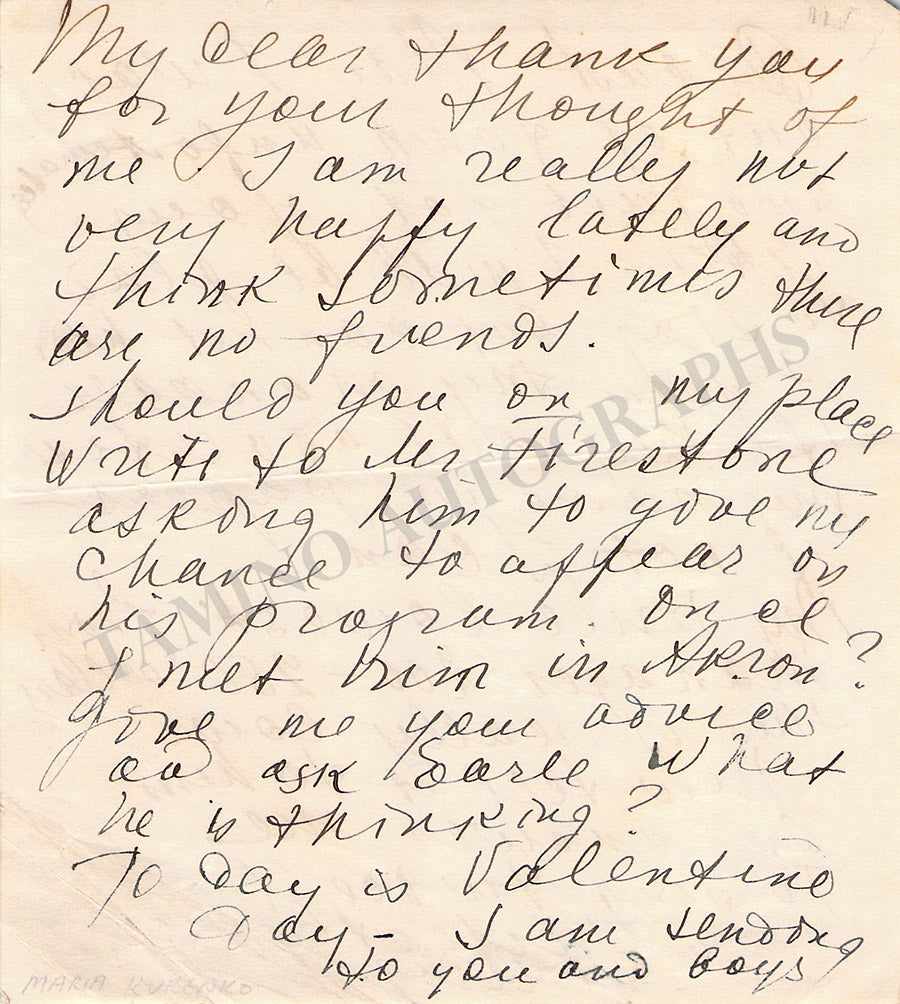 My dear thank you
for your thought of
me. I am really not
very happy lately and
think sometimes there
are no friends.
should you on my place
write to Mr Firestone
asking him to give my
chance to appear on
his program. Once
I meet him in Akron?
give me your advice
ad ask Earle What
he is thinking?
To Day is Valentine
Day - I am sending
to you and boys
MARIA KURENKO
TAMINO AUTOGRAPHS